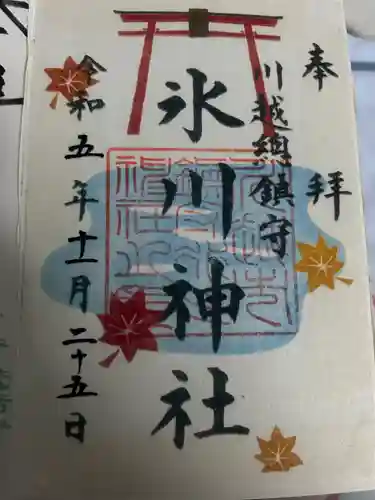 奉拝
川越總鎮守
氷川神社
令和五年十一月二十五日